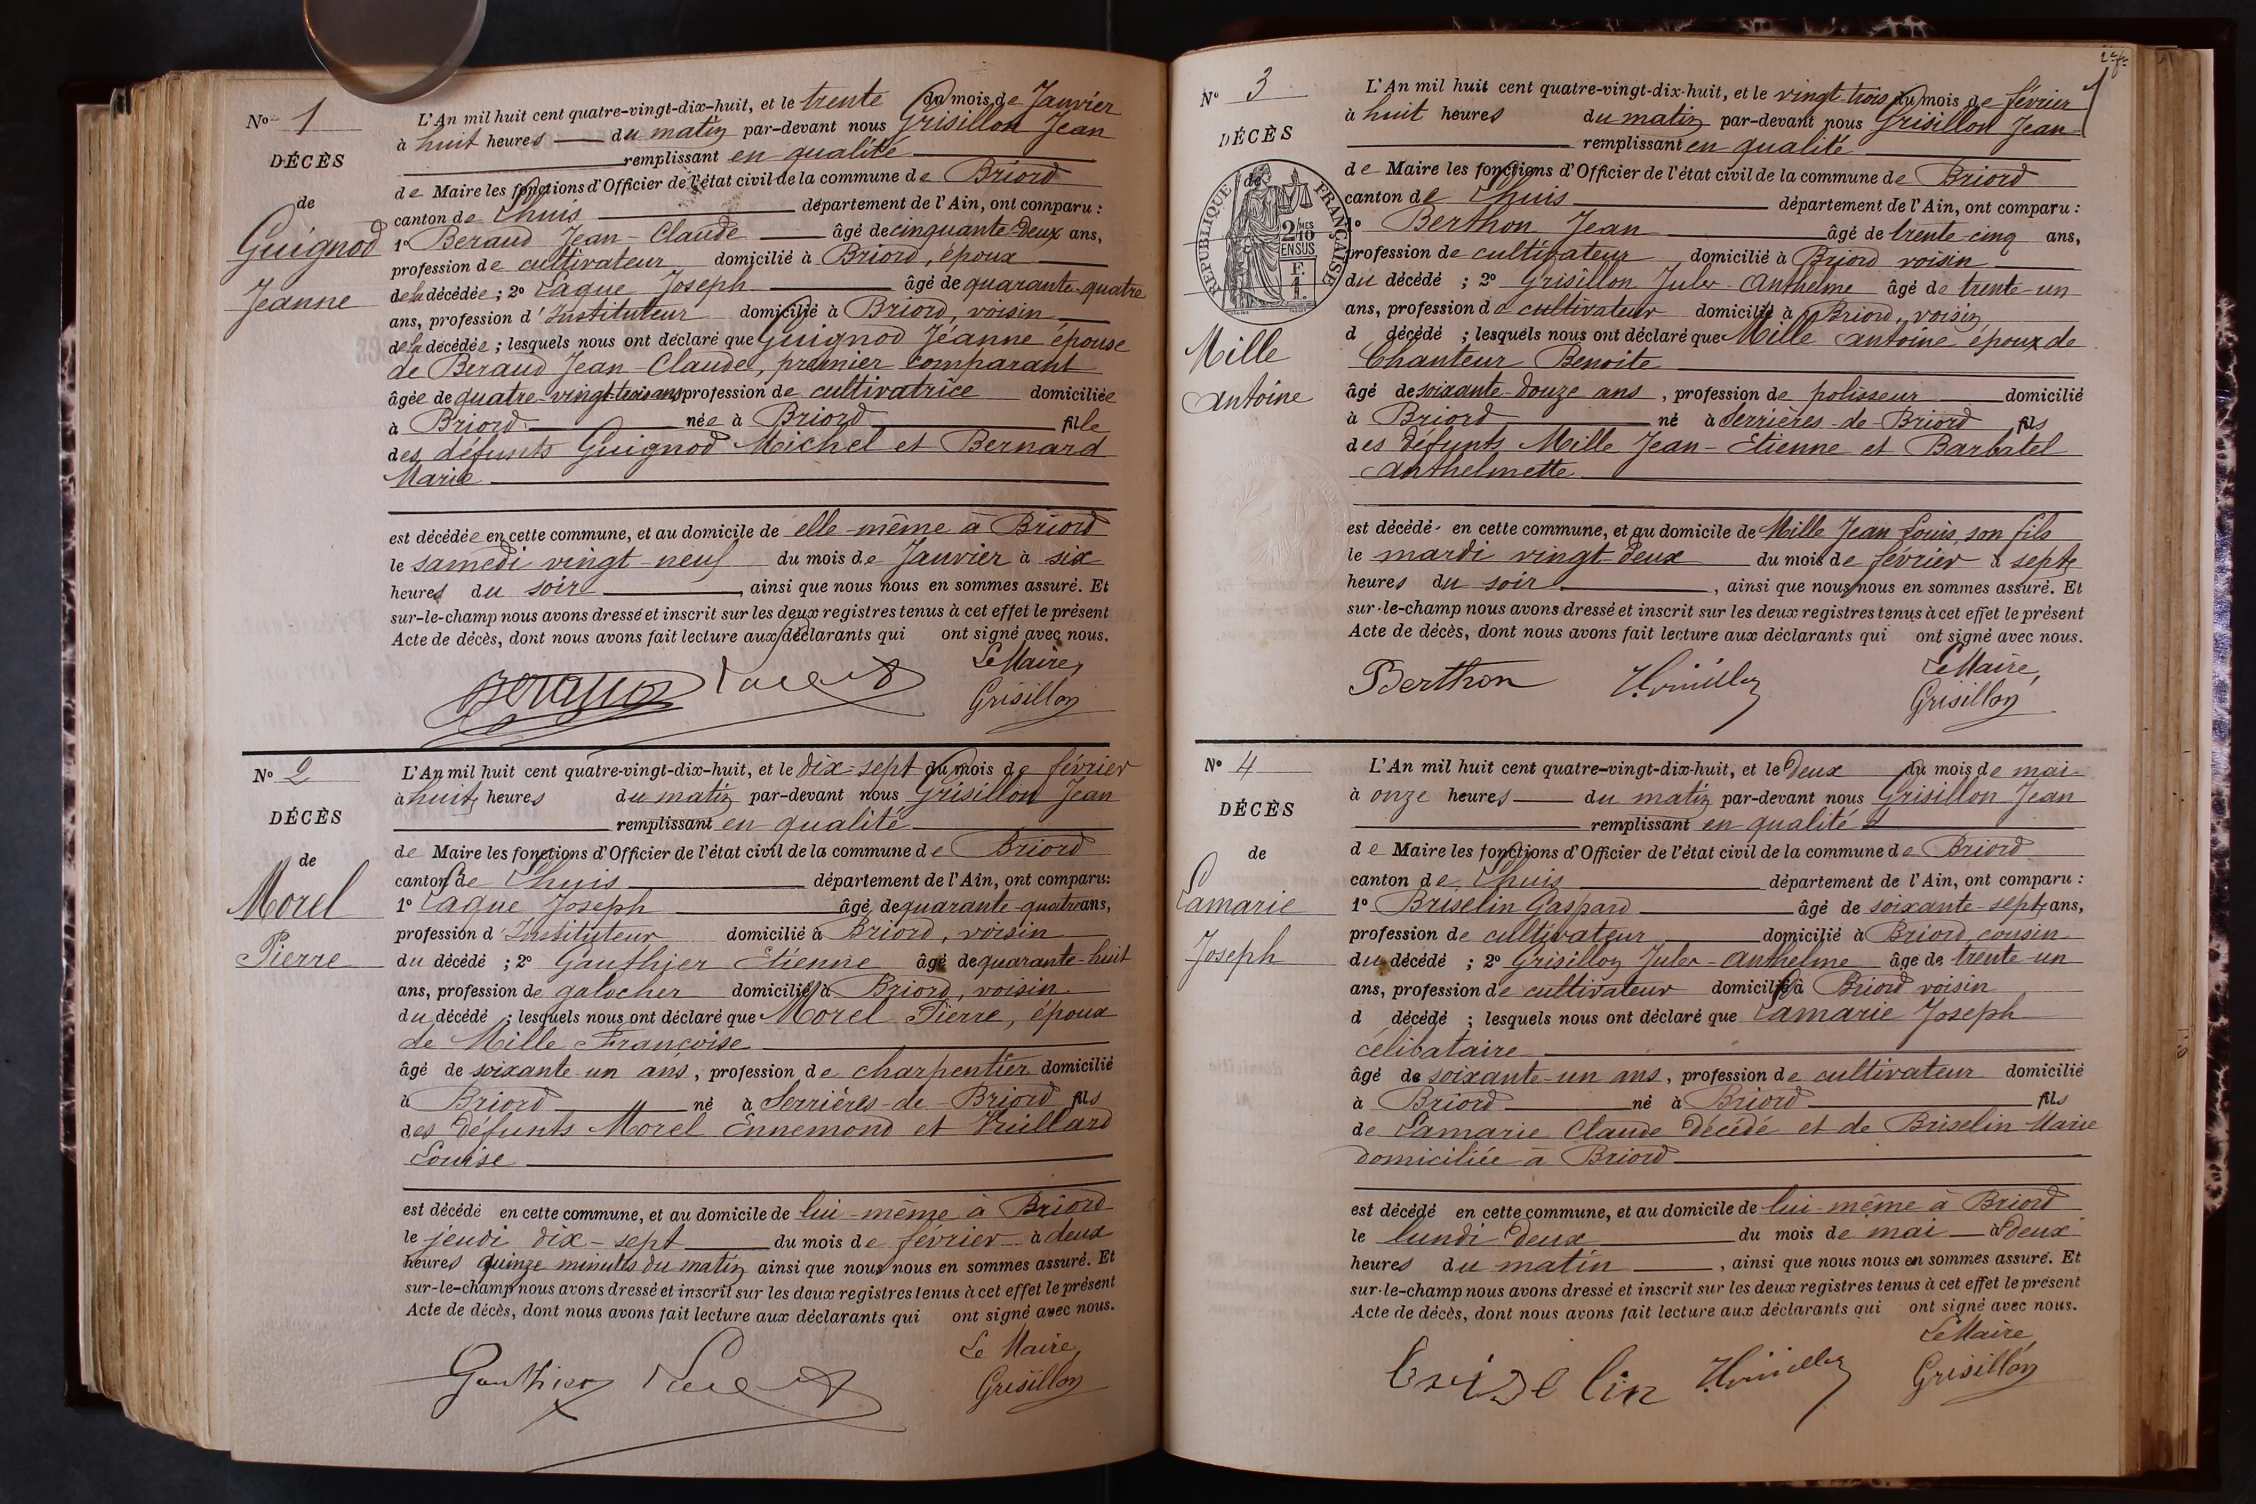 N° 1
DÉCÈS
de
Guignod
Jeanne
L'An mil huit cent quatre-vingt-dix-huit, et le trente du mois de Janvier
à huit heures du matin par-devant nous Grisillon Jean
remplissant en qualité
de Maire les fonctions d'Officier de l'état civil de la commune de Briord
canton de Lhuis département de l'Ain, ont comparu :
1° Beraud Jean-Claude âgé de cinquante-deux ans,
profession de cultivateur domicilié à Briord, époux
de la décédée ; 2° Laque Joseph âgé de quarante-quatre
ans, profession d'Instituteur domicilié à Briord, voisin
de la décédée ; lesquels nous ont déclaré que Guignod Jeanne épouse
de Beraud Jean-Claude, premier comparant
âgée de quatre-vingt-trois ans profession de cultivatrice domiciliée
à Briord née à Briord fille
des défunts Guignod Michel et Bernard
Marie
est décédée en cette commune, et au domicile de elle-même à Briord
le samedi vingt-neuf du mois de Janvier à six
heures du soir, ainsi que nous nous en sommes assuré. Et
sur-le-champ nous avons dressé et inscrit sur les deux registres tenus à cet effet le présent
Acte de décès, dont nous avons fait lecture aux déclarants qui ont signé avec nous.
Le Maire,
Grisillon
N° 2
DÉCÈS
de
Morel
Pierre
L'An mil huit cent quatre-vingt-dix-huit, et le dix-sept du mois de février
à huit heures du matin par-devant nous Grisillon Jean
remplissant en qualité
de Maire les fonctions d'Officier de l'état civil de la commune de Briord
canton de Lhuis département de l'Ain, ont comparu:
1° Laque Joseph âgé de quarante-quatre ans,
profession d'Instituteur domicilié à Briord, voisin
du décédé ; 2° Gauthier Etienne âgé de quarante-huit
ans, profession de galocher domicilié à Briord, voisin
du décédé ; lesquels nous ont déclaré que Morel Pierre, époux
de Mille Françoise
âgé de soixante-un ans, profession de charpentier domicilié
à Briord né à Serrières-de-Briord fils
des défunts Morel Ennemond et Vuillard
Louise
est décédé en cette commune, et au domicile de lui-même à Briord
le jeudi dix-sept du mois de février à deux
heures quinze minutes du matin ainsi que nous nous en sommes assuré. Et
sur-le-champ nous avons dressé et inscrit sur les deux registres tenus à cet effet le présent
Acte de décès, dont nous avons fait lecture aux déclarants qui ont signé avec nous.
Le Maire,
Gauthier
Grisillon
N° 3
DÉCÈS
de
RÉPUBLIQUE FRANÇAISE
2/10MES
EN SUS
Mille
Antoine
L'An mil huit cent quatre-vingt-dix-huit, et le vingt-trois du mois de février
à huit heures du matin par-devant nous Grisillon Jean
remplissant en qualité
de Maire les fonctions d'Officier de l'état civil de la commune de Briord
canton de Lhuis département de l'Ain, ont comparu :
1° Berthon Jean âgé de trente-cinq ans,
profession de cultivateur domicilié à Briord voisin
du décédé ; 2° Grisillon Jules-Anthelme âgé de trente-un
ans, profession de cultivateur domicilié à Briord, voisin
d décédé ; lesquels nous ont déclaré que Mille Antoine époux de
Chanteur Benoite
âgé de soixante-douze ans, profession de polisseur domicilié
à Briord né à Serrières-de-Briord fils
des défunts Mille Jean-Etienne et Barbatel
Anthelmette
est décédé en cette commune, et au domicile de Mille Jean Louis, son fils
le mardi vingt-deux du mois de février à sept
heures du soir, ainsi que nous nous en sommes assuré. Et
sur-le-champ nous avons dressé et inscrit sur les deux registres tenus à cet effet le présent
Acte de décès, dont nous avons fait lecture aux déclarants qui ont signé avec nous.
Le Maire,
Berthon
Grisillon
N° 4
DÉCÈS
de
Lamarie
Joseph
L'An mil huit cent quatre-vingt-dix-huit, et le deux du mois de mai
à onze heures du matin par-devant nous Grisillon Jean
remplissant en qualité
de Maire les fonctions d'Officier de l'état civil de la commune de Briord
canton de Lhuis département de l'Ain, ont comparu :
1° Briselin Gaspard âgé de soixante-sept ans,
profession de cultivateur domicilié à Briord cousin
du décédé ; 2° Grisillon Jules-Anthelme âgé de trente-un
ans, profession de cultivateur domicilié à Briord voisin
d décédé ; lesquels nous ont déclaré que Lamarie Joseph
célibataire
âgé de soixante-un ans, profession de cultivateur domicilié
à Briord né à Briord fils
de Lamarie Claude décédé et de Briselin Marie
domiciliée à Briord
est décédé en cette commune, et au domicile de lui-même à Briord
le lundi deux du mois de mai à deux
heures du matin, ainsi que nous nous en sommes assuré. Et
sur-le-champ nous avons dressé et inscrit sur les deux registres tenus à cet effet le présent
Acte de décès, dont nous avons fait lecture aux déclarants qui ont signé avec nous.
Le Maire,
brizelin
Grisillon